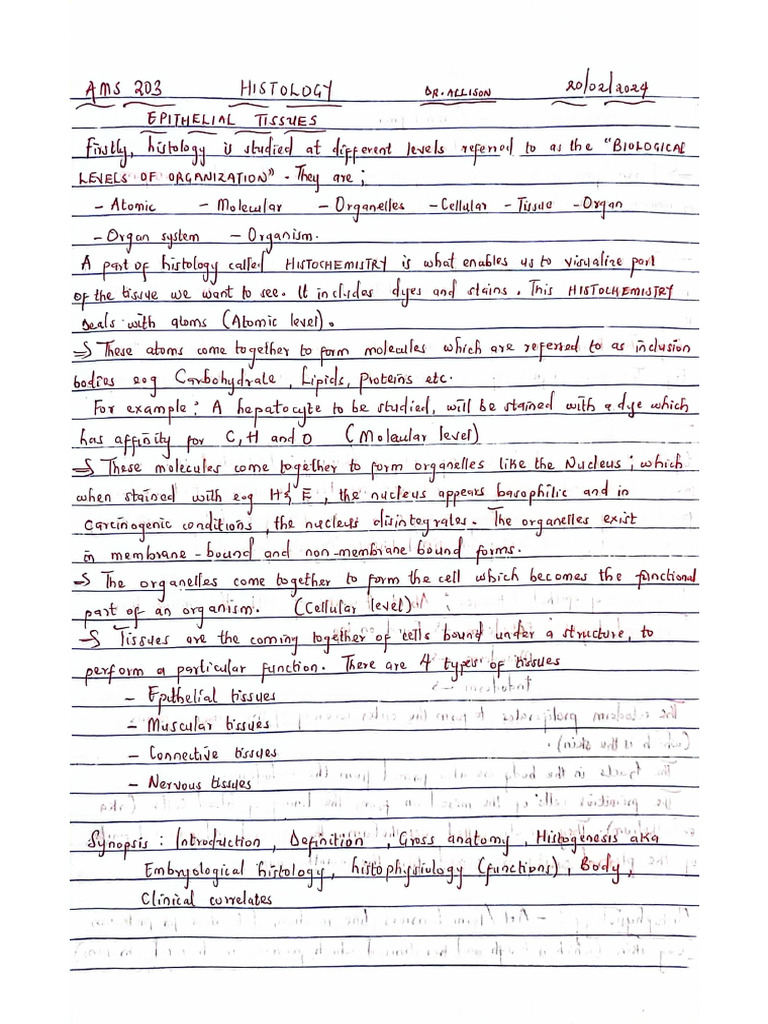 AMS 203 HISTOLOGY DR. ALLISON 20/02/2024
EPITHELIAL TISSUES
Firstly, histology is studied at different levels referred to as the "BIOLOGICAL
LEVELS OF ORGANIZATION" - They are;
- Atomic - Molecular - Organelles - Cellular - Tissue - Organ
- Organ system - Organism.
A part of histology called HISTOCHEMISTRY is what enables us to visualize part
of the tissue we want to see. It includes dyes and stains. This HISTOCHEMISTRY
deals with atoms (Atomic level).
⇒ These atoms come together to form molecules which are referred to as inclusion
bodies e.g Carbohydrate, Lipids, Proteins etc.
For example: A hepatocyte to be studied, will be stained with a dye which
has affinity for C, H and O (Molecular level)
⇒ These molecules come together to form organelles like the Nucleus; which
when stained with e.g H & E, the nucleus appears basophilic and in
carcinogenic conditions, the nucleus disintegrates. The organelles exist
in membrane-bound and non-membrane bound forms.
⇒ The organelles come together to form the cell which becomes the functional
part of an organism. (Cellular level)
⇒ Tissues are the coming together of cells bound under a structure, to
perform a particular function. There are 4 types of tissues
- Epithelial tissues
- Muscular tissues
- Connective tissues
- Nervous tissues
Synopsis: Introduction, Definition, Gross anatomy, Histogenesis aka
Embryological histology, histophysiology (functions), Body,
Clinical correlates